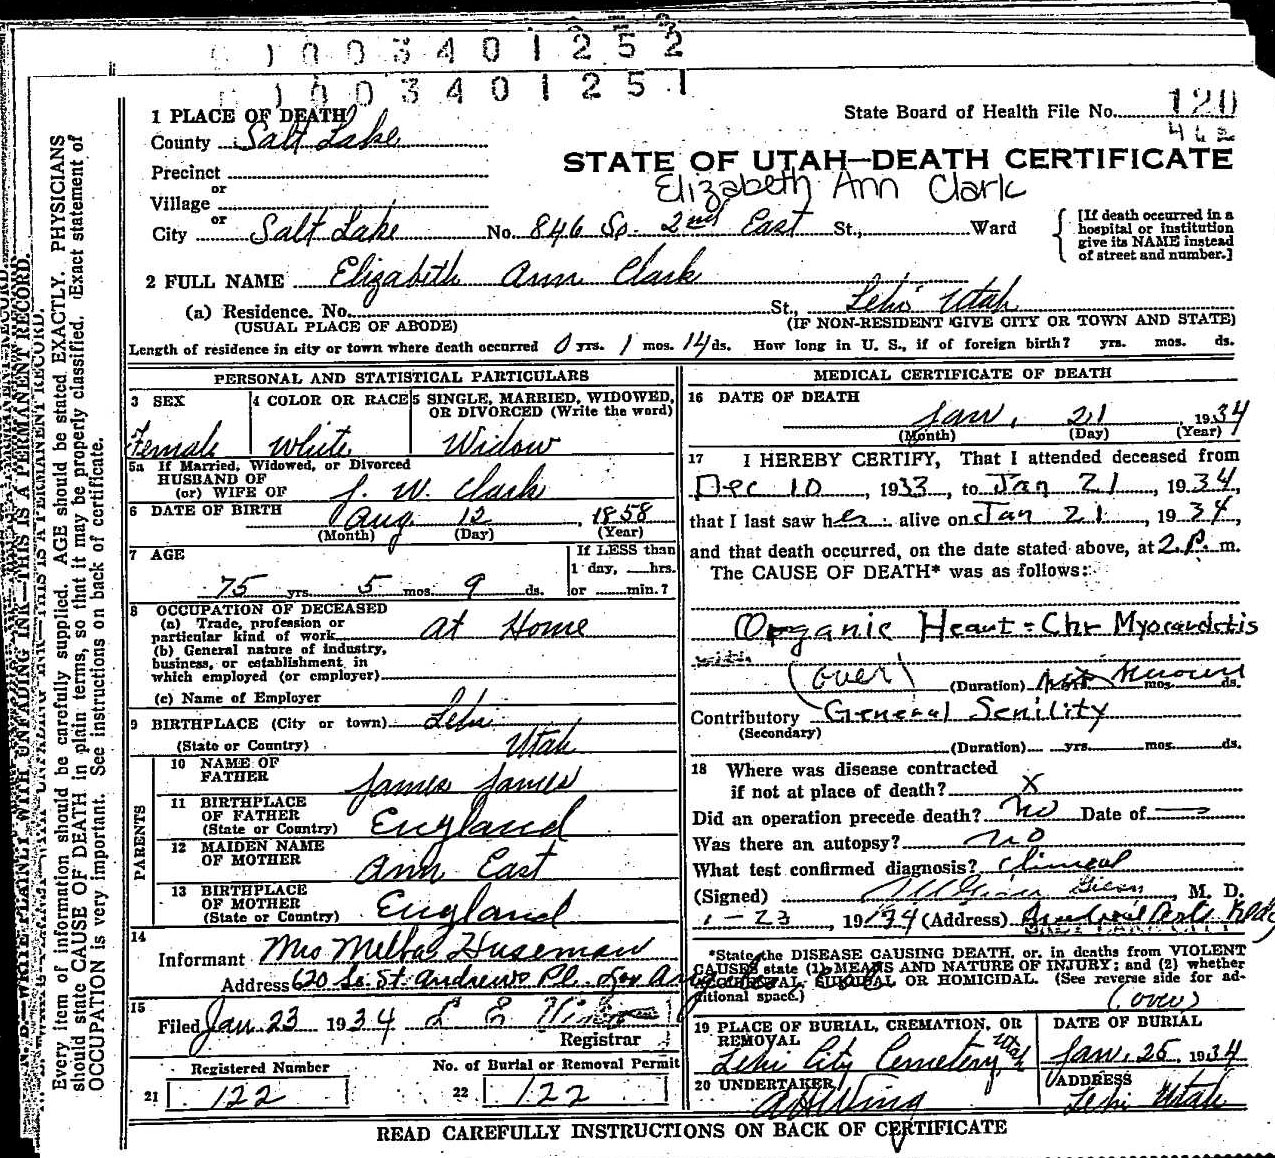 1003401252
1003401251
1 PLACE OF DEATH
State Board of Health File No. 120
County Salt Lake
462
STATE OF UTAH—DEATH CERTIFICATE
Precinct
Elizabeth Ann Clark
or
Village
or
City Salt Lake No. 846 So. 2nd East St., Ward
[If death occurred in a hospital or institution give its NAME instead of street and number.]
2 FULL NAME Elizabeth Ann Clark
(a) Residence. No. St., Lehi Utah
(USUAL PLACE OF ABODE) (IF NON-RESIDENT GIVE CITY OR TOWN AND STATE)
Length of residence in city or town where death occurred 0 yrs. 1 mos. 14 ds. How long in U. S., if of foreign birth? yrs. mos. ds.
PERSONAL AND STATISTICAL PARTICULARS
3 SEX 4 COLOR OR RACE 5 SINGLE, MARRIED, WIDOWED,
OR DIVORCED (Write the word)
Female White Widow
5a If Married, Widowed, or Divorced
HUSBAND OF
(or) WIFE OF J. W. Clark
6 DATE OF BIRTH Aug. 12, 1858
(Month) (Day) (Year)
7 AGE If LESS than
1 day, hrs.
75 yrs. 5 mos. 9 ds. or min.?
8 OCCUPATION OF DECEASED
(a) Trade, profession or
particular kind of work At Home
(b) General nature of industry,
business, or establishment in
which employed (or employer)
(c) Name of Employer
9 BIRTHPLACE (City or town) Lehi
(State or Country) Utah
PARENTS
10 NAME OF
FATHER James James
11 BIRTHPLACE
OF FATHER
(State or Country) England
12 MAIDEN NAME
OF MOTHER Ann East
13 BIRTHPLACE
OF MOTHER
(State or Country) England
14
Informant Mrs Melba Huseman
Address 620 So. St. Andrews Pl. Los Angeles
15
Filed Jan. 23 1934 L E
Registrar
Registered Number No. of Burial or Removal Permit
21 122 22 122
MEDICAL CERTIFICATE OF DEATH
16 DATE OF DEATH
Jan. 21 1934
(Month) (Day) (Year)
17 I HEREBY CERTIFY, That I attended deceased from
Dec 10, 1933, to Jan 21, 1934,
that I last saw her alive on Jan 21, 1934,
and that death occurred, on the date stated above, at 2 P. m.
The CAUSE OF DEATH* was as follows:
Organic Heart = Chr Myocarditis
(over)
(Duration) Not Known mos. ds.
Contributory General Senility
(Secondary)
(Duration) yrs. mos. ds.
18 Where was disease contracted
if not at place of death? X
Did an operation precede death? No Date of
Was there an autopsy? no
What test confirmed diagnosis? Clinical
(Signed) M. D.
1-23 1934 (Address)
*State the DISEASE CAUSING DEATH, or, in deaths from VIOLENT
CAUSES state (1) MEANS AND NATURE OF INJURY; and (2) whether
ACCIDENTAL, SUICIDAL OR HOMICIDAL. (See reverse side for ad-
ditional space.)
(over)
19 PLACE OF BURIAL, CREMATION, OR
REMOVAL
Lehi City Cemetery Utah
DATE OF BURIAL
Jan. 25, 1934
20 UNDERTAKER
A H Wing
ADDRESS
Lehi Utah
READ CAREFULLY INSTRUCTIONS ON BACK OF CERTIFICATE
N. B.—WRITE PLAINLY WITH UNFADING INK—THIS IS A PERMANENT RECORD.
Every item of information should be carefully supplied. AGE should be stated EXACTLY. PHYSICIANS
should state CAUSE OF DEATH in plain terms, so that it may be properly classified. Exact statement of
OCCUPATION is very important. See instructions on back of certificate.